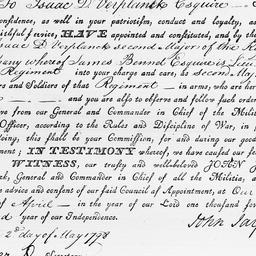 To Isaac D. Verplanck Esquire
onfidence, as well in your patriotism, conduct and loyalty, as
ithful service, HAVE appointed and constituted, and by the
saac D Verplanck second Major of the Re
pany whereof James Bonnel Esquire is Lieu
Regiment into your charge and care, as second Majo
rs and Soldiers of that Regiment in arms, who are her
and you are also to observe and follow such order
ve from our General and Commander in Chief of the Militia
Officer, according to the Rules and Discipline of War, in p
oing, this shall be your Commission, for and during our good
ment; IN TESTIMONY whereof, we have caused our sea
WITNESS, our trusty and well-beloved JOHN J
rk, General and Commander in Chief of all the Militia, a
e advice and consent of our said Council of Appointment, at Our
of April in the year of our Lord one thousand
d year of our Independence.
John Jay
2d day of May 1798